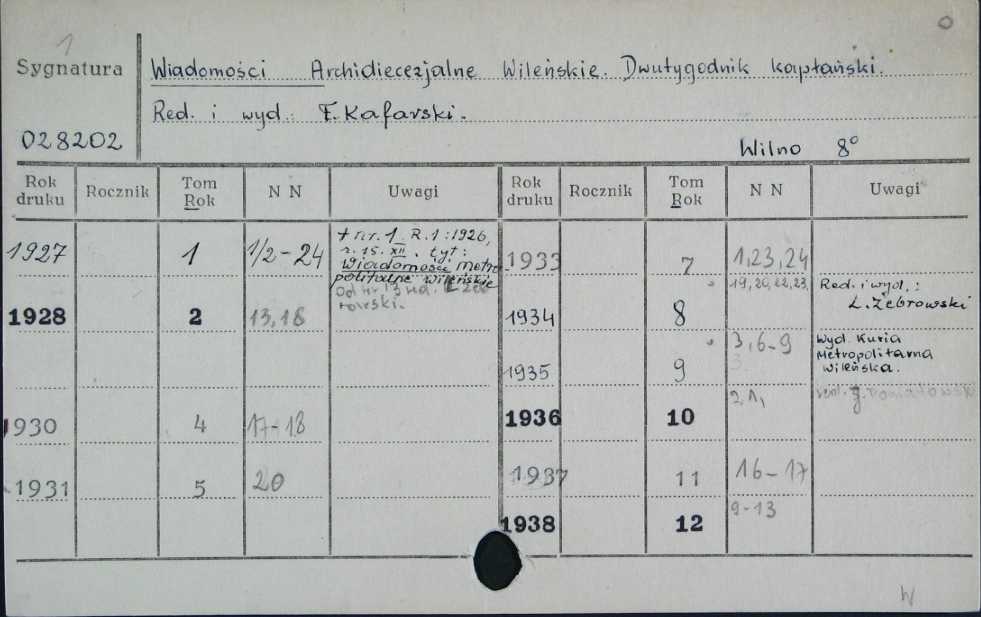 1
Sygnatura
Wiadomości Archidiecezjalne Wileńskie. Dwutygodnik kapłański.
Red. i wyd.: F. Kafarski.
028202
Wilno 8°
Rok druku Rocznik Tom Rok N N Uwagi Rok druku Rocznik Tom Rok N N Uwagi
1927 1 1/2-24 + nr. 1 R. 1: 1926,
z. 15. XII. tyt:
Wiadomości Metro
politalne Wileńskie
Od nr 13 na.
1928 2 13,18
1930 4 17-18
1931 5 20
1933 7 1,23,24
1934 8 19,20,22,23, Red. i wyd.:
L. Żebrowski
1935 9 3,6-9 Wyd. Kuria
Metropolitarna
Wileńska.
1936 10 21,
1937 11 16-17
1938 12 9-13
W